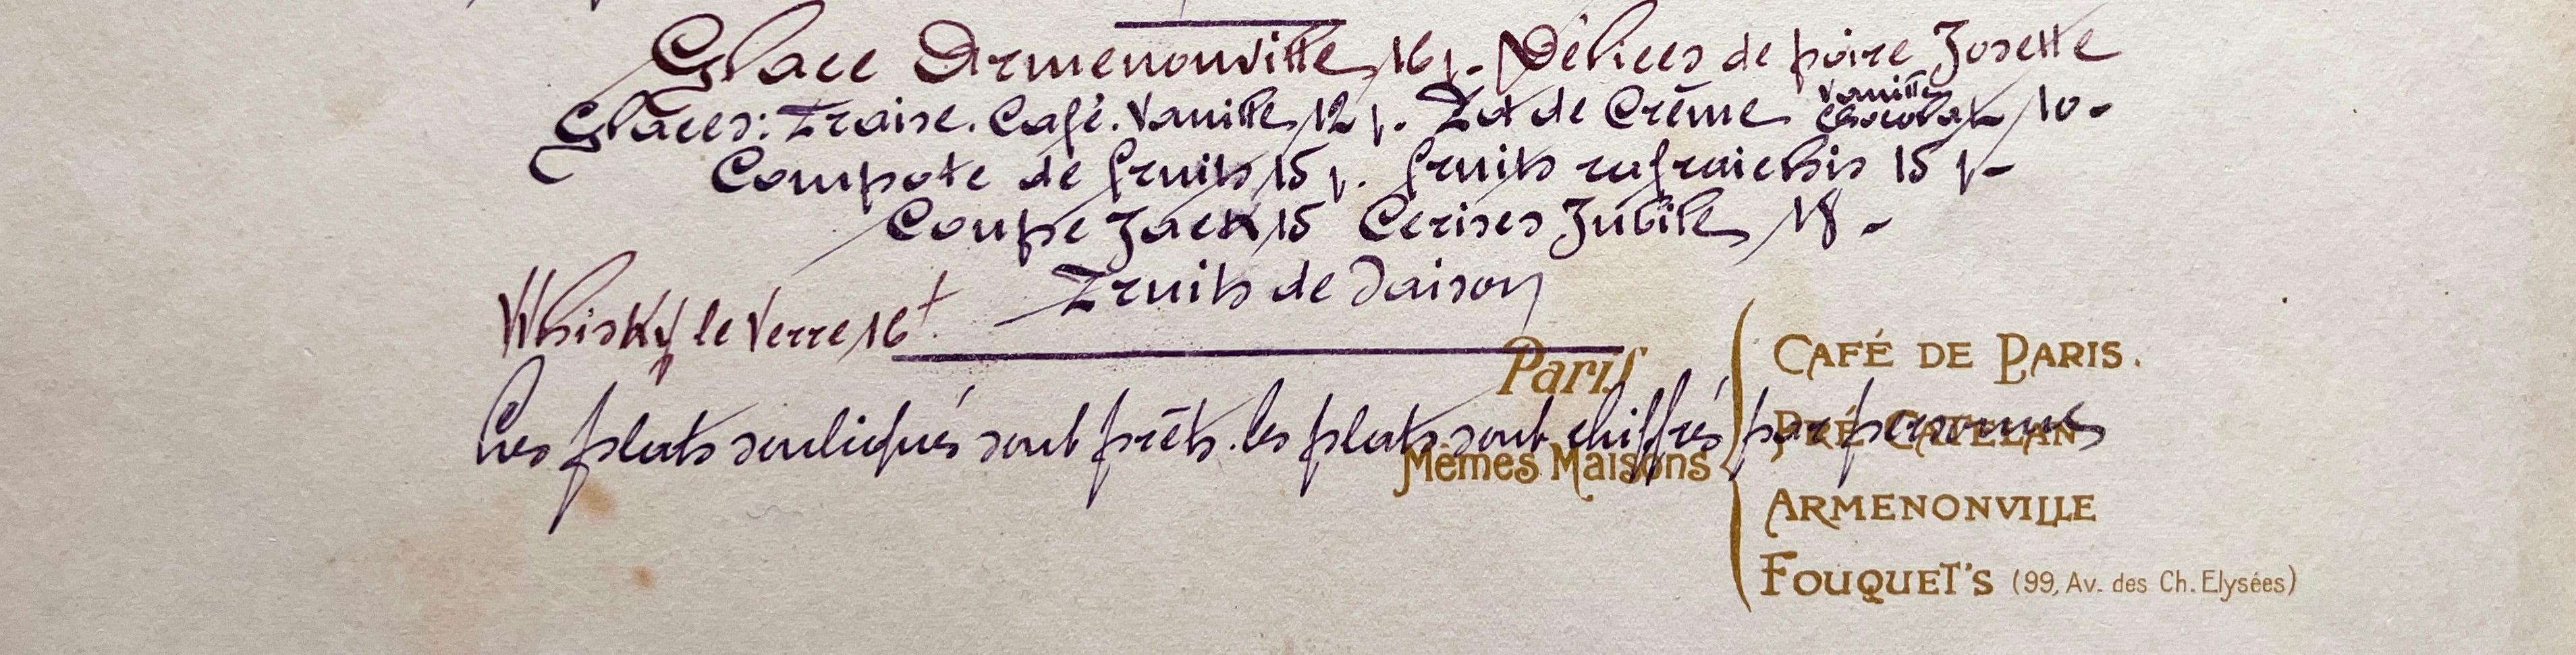 Glace Armenonville 16f. Délices de poire Josette
Glaces: Fraise. Café. Vanille 12f. Pot de Crème Vanille Chocolat 10.
Compote de fruits 15f. fruits rafraichis 15f.
Coupe Jack 15 Cerises Jubilé 18.
Fruits de Saison
Whisky le Verre 16f
Les plats souliqués sont prêts. les plats sont chiffrés par personnes
Paris
Mêmes Maisons
CAFÉ DE PARIS.
PRÉ CATELAN
ARMENONVILLE
FOUQUET'S (99, Av. des Ch. Elysées)